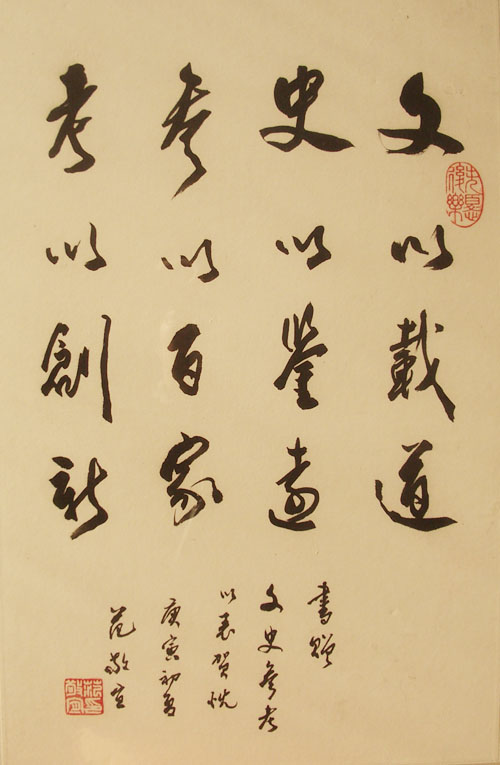 文以載道
史以鑒遠
參以百家
考以創新
書贈
文史參考
以表賀忱
庚寅初夏
范敬宜
先憂後樂
范敬宜